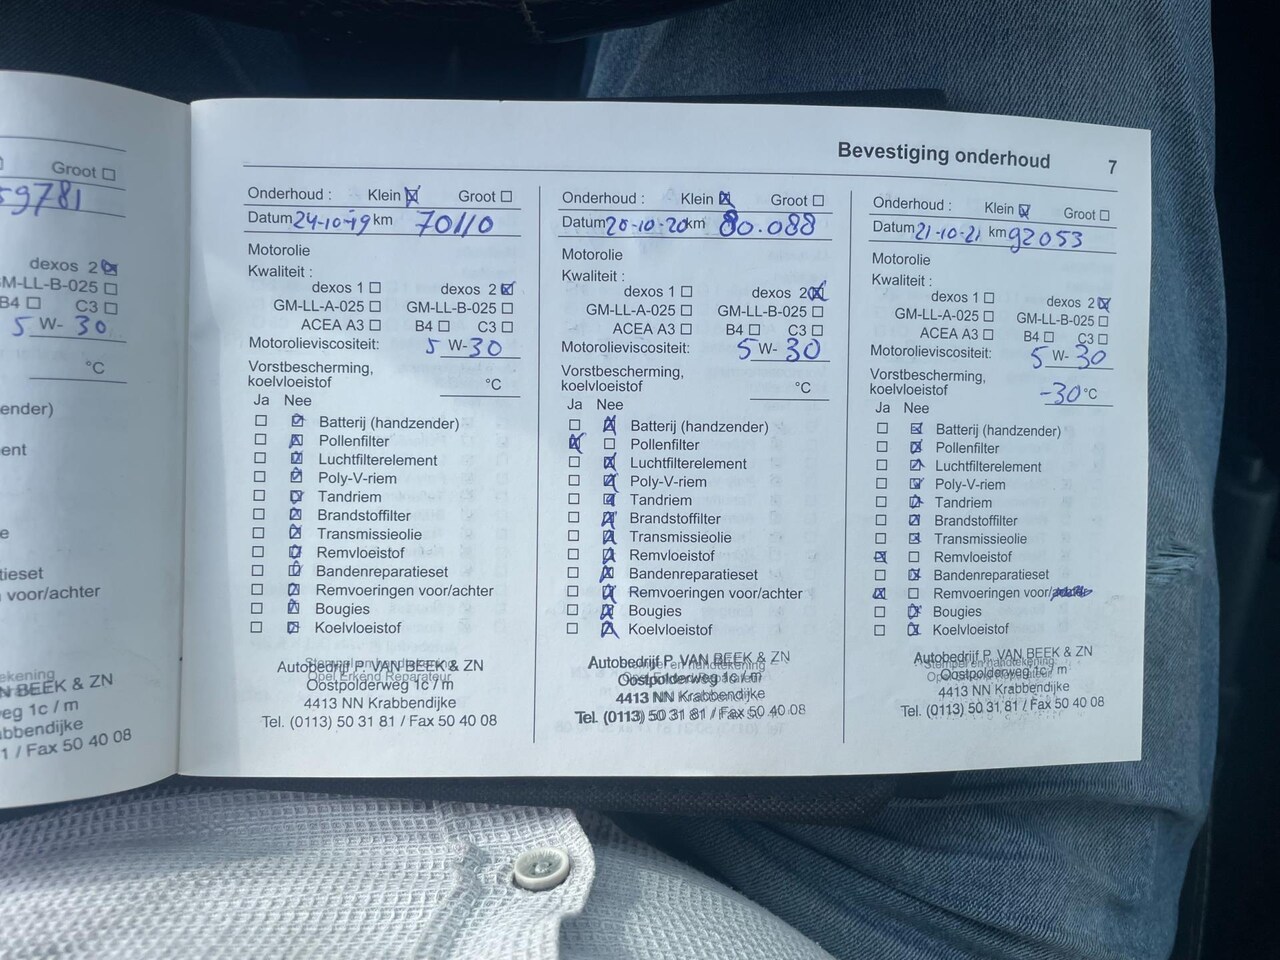 Groot
59781
dexos 2
M-LL-B-025
B4 C3
5 W- 30
°C
ender)
ent
e
tieset
voor/achter
ekening
N BEEK & ZN
eg 1c / m
abbendijke
1 / Fax 50 40 08
Bevestiging onderhoud 7
Onderhoud : Klein Groot
Datum 24-10-19 km 70110
Motorolie
Kwaliteit :
dexos 1 dexos 2
GM-LL-A-025 GM-LL-B-025
ACEA A3 B4 C3
Motorolieviscositeit: 5 W-30
Vorstbescherming,
koelvloeistof °C
Ja Nee
Batterij (handzender)
Pollenfilter
Luchtfilterelement
Poly-V-riem
Tandriem
Brandstoffilter
Transmissieolie
Remvloeistof
Bandenreparatieset
Remvoeringen voor/achter
Bougies
Koelvloeistof
Stempel en handtekening
Opel Erkend Reparateur
Autobedrijf P. VAN BEEK & ZN
Oostpolderweg 1c / m
4413 NN Krabbendijke
Tel. (0113) 50 31 81 / Fax 50 40 08
Onderhoud : Klein Groot
Datum 20-10-20 km 80.088
Motorolie
Kwaliteit :
dexos 1 dexos 2
GM-LL-A-025 GM-LL-B-025
ACEA A3 B4 C3
Motorolieviscositeit: 5 W- 30
Vorstbescherming,
koelvloeistof °C
Ja Nee
Batterij (handzender)
Pollenfilter
Luchtfilterelement
Poly-V-riem
Tandriem
Brandstoffilter
Transmissieolie
Remvloeistof
Bandenreparatieset
Remvoeringen voor/achter
Bougies
Koelvloeistof
Autobedrijf P. VAN BEEK & ZN
Oostpolderweg 1c / m
4413 NN Krabbendijke
Tel. (0113) 50 31 81 / Fax 50 40 08
Onderhoud : Klein Groot
Datum 21-10-21 km 92053
Motorolie
Kwaliteit :
dexos 1 dexos 2
GM-LL-A-025 GM-LL-B-025
ACEA A3 B4 C3
Motorolieviscositeit: 5 W- 30
Vorstbescherming,
koelvloeistof -30°C
Ja Nee
Batterij (handzender)
Pollenfilter
Luchtfilterelement
Poly-V-riem
Tandriem
Brandstoffilter
Transmissieolie
Remvloeistof
Bandenreparatieset
Remvoeringen voor/
Bougies
Koelvloeistof
Autobedrijf P. VAN BEEK & ZN
Stempel en handtekening
Oostpolderweg 1c / m
4413 NN Krabbendijke
Tel. (0113) 50 31 81 / Fax 50 40 08